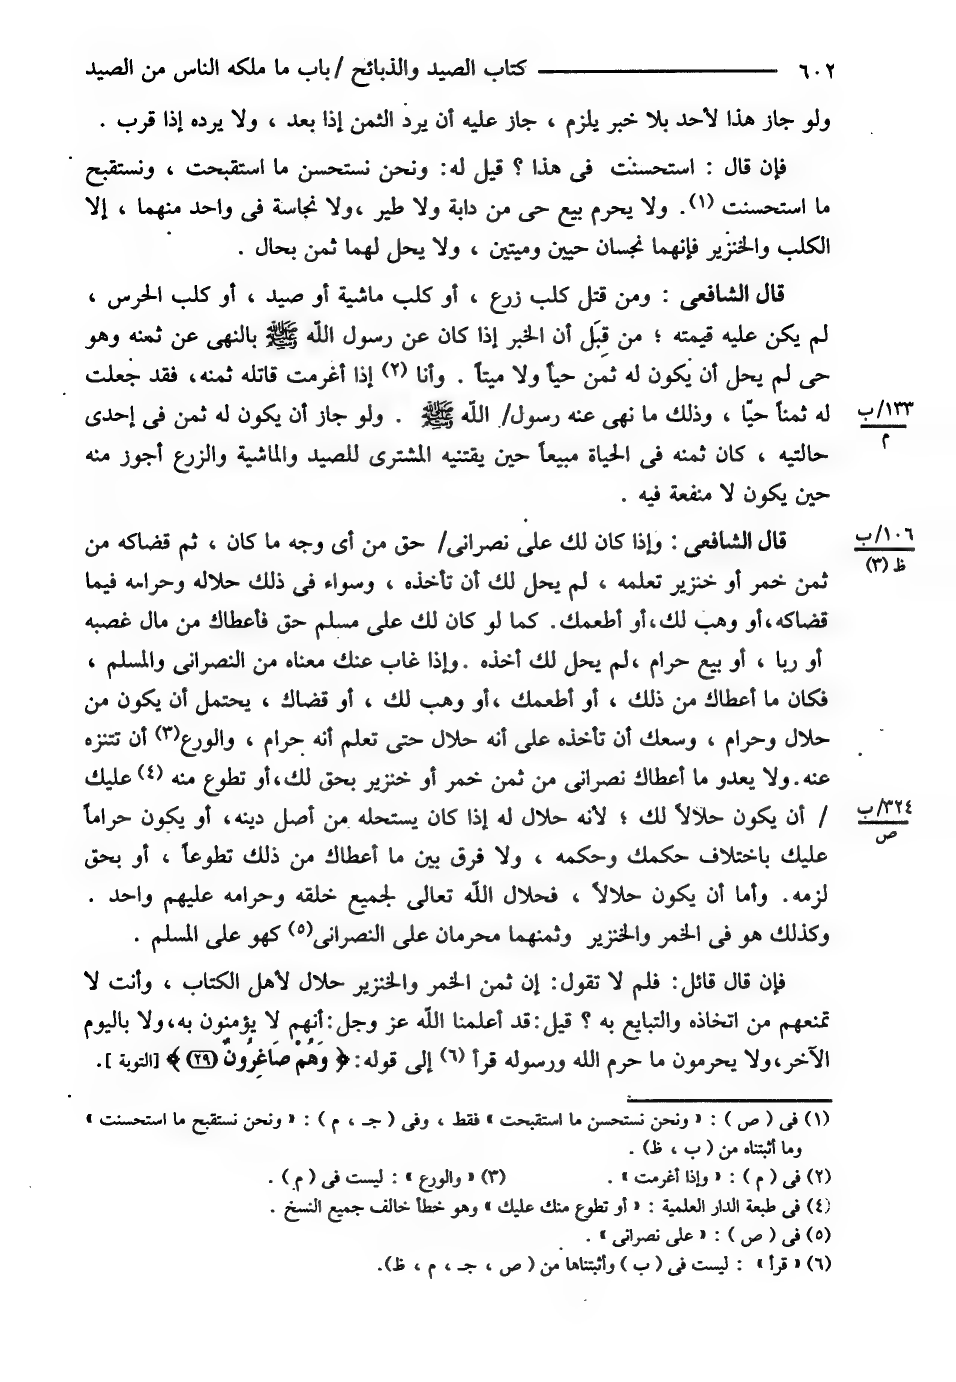 ٦٠٢ كتاب الصيد والذبائح / باب ما ملكه الناس من الصيد
ولو جاز هذا لأحد بلا خبر يلزم ، جاز عليه أن يرد الثمن إذا بعد ، ولا يرده إذا قرب .
فإن قال : استحسنت فى هذا ؟ قيل له: ونحن نستحسن ما استقبحت ، ونستقبح
ما استحسنت (١). ولا يحرم بيع حى من دابة ولا طير ،ولا نجاسة فى واحد منهما ، إلا
الكلب والخنزير فإنهما نجسان حيين وميتين ، ولا يحل لهما ثمن بحال .
قال الشافعى : ومن قتل كلب زرع ، أو كلب ماشية أو صيد ، أو كلب الحرس ،
لم يكن عليه قيمته ؛ من قِبَل أن الخبر إذا كان عن رسول اللّه ﷺ بالنهى عن ثمنه وهو
حى لم يحل أن يكون له ثمن حياً ولا ميتاً . وأنا (٢) إذا أغرمت قاتله ثمنه، فقد جعلت
له ثمناً حيًّا ، وذلك ما نهى عنه رسول/ اللّه ﷺ . ولو جاز أن يكون له ثمن فى إحدى
١٣٣/ب
م
حالتيه ، كان ثمنه فى الحياة مبيعاً حين يقتنيه المشترى للصيد والماشية والزرع أجوز منه
حين يكون لا منفعة فيه .
قال الشافعى : وإذا كان لك على نصرانى/ حق من أى وجه ما كان ، ثم قضاكه من
١٠٦/ب
ظ (٣)
ثمن خمر أو خنزير تعلمه ، لم يحل لك أن تأخذه ، وسواء فى ذلك حلاله وحرامه فيما
قضاكه،أو وهب لك،أو أطعمك. كما لو كان لك على مسلم حق فأعطاك من مال غصبه
أو ربا ، أو بيع حرام ،لم يحل لك أخذه .وإذا غاب عنك معناه من النصرانى والمسلم ،
فكان ما أعطاك من ذلك ، أو أطعمك ،أو وهب لك ، أو قضاك ، يحتمل أن يكون من
حلال وحرام ، وسعك أن تأخذه على أنه حلال حتى تعلم أنه حرام ، والورع(٣) أن تتنزه
عنه.ولا يعدو ما أعطاك نصرانى من ثمن خمر أو خنزير بحق لك،أو تطوع منه (٤) عليك
/ أن يكون حلالاً لك ؛ لأنه حلال له إذا كان يستحله من أصل دينه، أو يكون حراماً
٣٢٤/ب
ص
عليك باختلاف حكمك وحكمه ، ولا فرق بين ما أعطاك من ذلك تطوعاً ، أو بحق
لزمه. وأما أن يكون حلالاً ، فحلال اللّه تعالى لجميع خلقه وحرامه عليهم واحد .
وكذلك هو فى الخمر والخنزير وثمنهما محرمان على النصرانى(٥) كهو على المسلم .
فإن قال قائل: فلم لا تقول: إن ثمن الخمر والخنزير حلال لأهل الكتاب ، وأنت لا
تمنعهم من اتخاذه والتبايع به ؟ قيل:قد أعلمنا اللّه عز وجل:أنهم لا يؤمنون به،ولا باليوم
الآخر،ولا يحرمون ما حرم الله ورسوله قرأ (٦) إلى قوله:﴿ وَهُمْ صَاغِرُونَ (٢٩) ﴾ [التوبة ].
(١) فى ( ص ) : « ونحن نستحسن ما استقبحت » فقط ، وفى ( جـ ، م ) : « ونحن نستقبح ما استحسنت »
وما أثبتناه من ( ب ، ظ) .
(٢) فى ( م ) : « وإذا أغرمت » . (٣) « والورع » : ليست فى ( م ) .
(٤) فى طبعة الدار العلمية : « أو تطوع منك عليك » وهو خطأ خالف جميع النسخ .
(٥) فى ( ص ) : « على نصرانى » .
(٦) « قرأ » : ليست فى ( ب ) وأثبتناها من ( ص ، جـ ، م ، ظ).